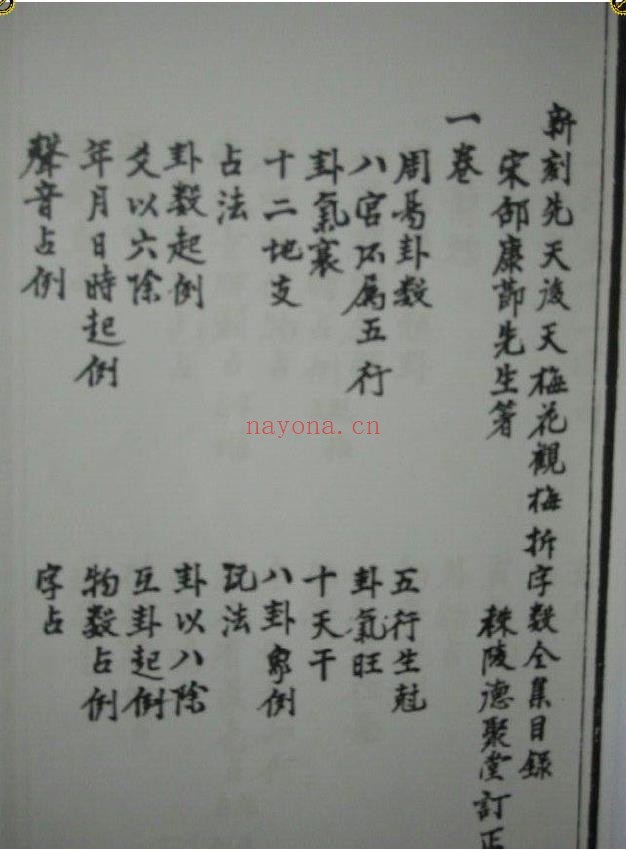 新刻先天後天梅花觀梅拆字数全集目録
宋邵康節先生著 秣陵德聚堂訂正
一卷
周易卦数 五行生尅
八宫所属五行 卦氣旺
卦氣衰 十天干
十二地支 八卦象例
占法 玩法
卦数起例 卦以八除
爻以六除 互卦起例
年月日時起例 物数占例
聲音占例 字占
nayona.cn